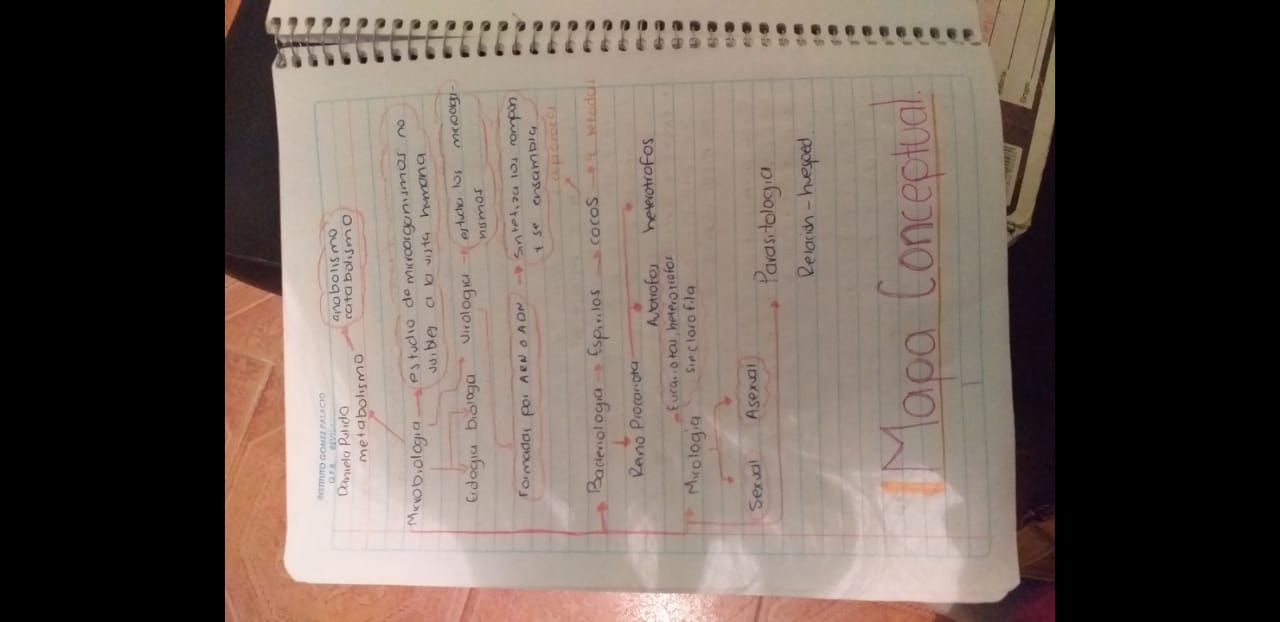 INSTITUTO GOMEZ PALACIO
Daniela Pulido
metabolismo
anabolismo
catabolismo
Microbiologia
estudio de microorganismos no
visibles a la vista humana
biologia
Virologia
estudia los microorga-
nismos
Formadas por ARN o ADN
Sintetiza los compon
y se ensambla
Bacteriologia
Espirilos
cocos
Reino Procariota
Autotrofos
heterotrofos
Eucariotas, heterotrofos
sin clorofila
Micologia
Sexual
Asexual
Parasitologia
Relacion - huesped
Mapa Conceptual.